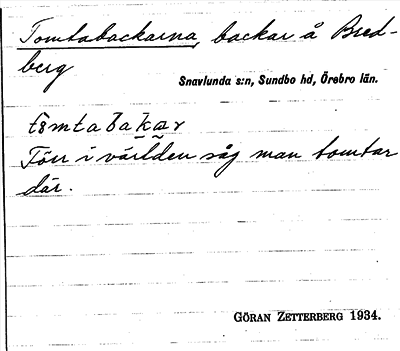 Tomtabackarna, backar å Bred-
berg
Snavlunda s:n, Sundbo hd, Örebro län.
Förr i världen såg man tomtar
där.
GÖRAN ZETTERBERG 1934.